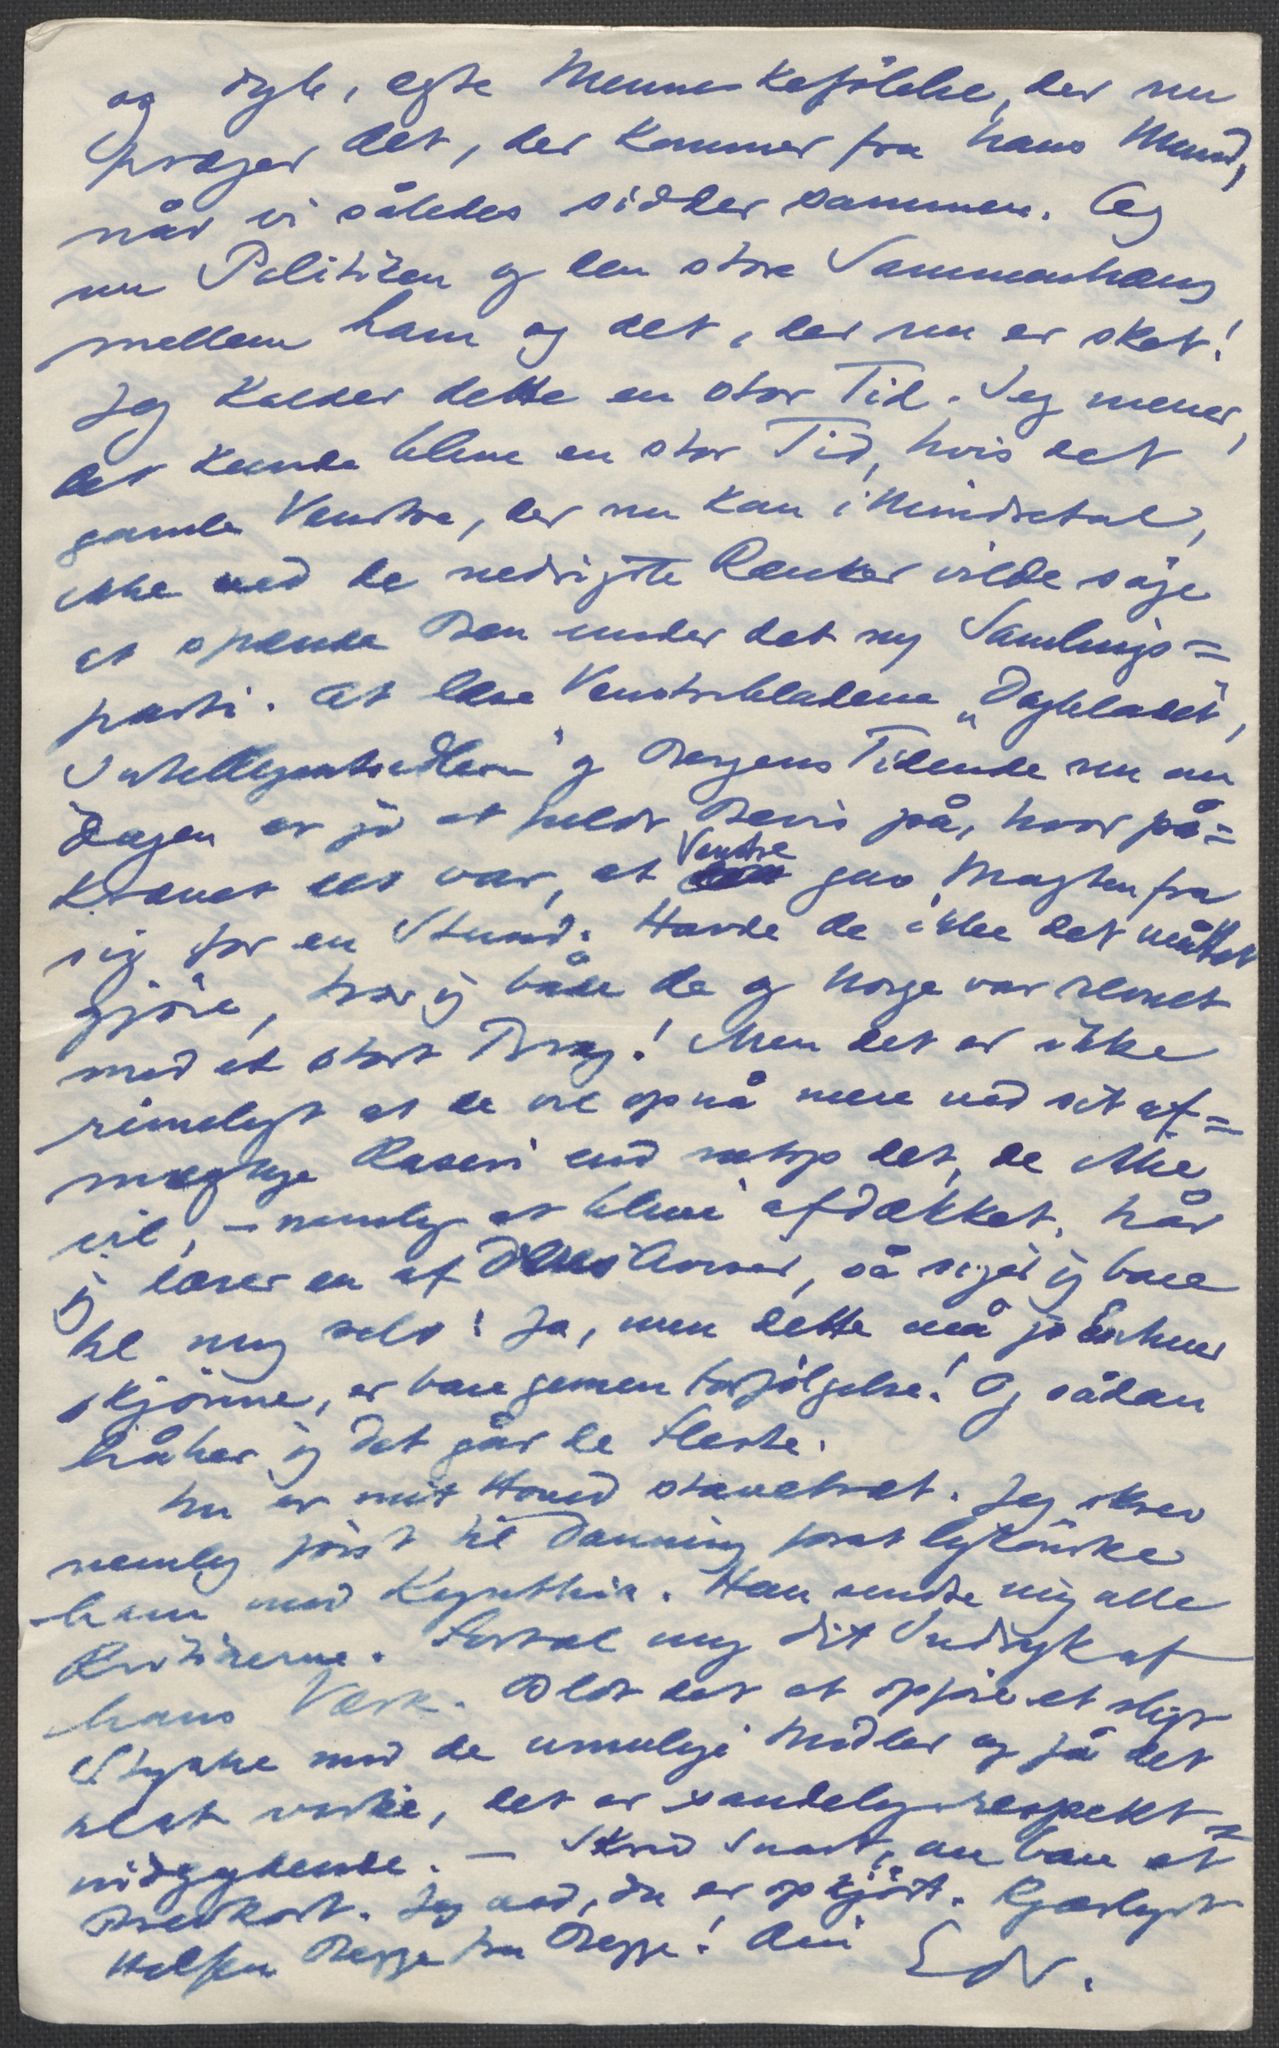 og dyb, egte Menneskefölelse, der nu
præger det, der kommer fra hans Mund,
når vi således sidder sammen. Og
nu Politiken og den store Sammenhæng
mellem ham og det, der nu er sket!
Jeg kalder dette en stor Tid. Jeg mener,
det kunde blive en stor Tid, hvis det
gamle Venstre, der nu kom i Mindretal,
ikke ved de nedrigste Rænker vilde söge
at spænde Ben under det ny Samlings=
parti. At læse Venstrebladene „Dagbladet",
Intelligentssedlerne" og Bergens Tidende nu om
Dagen er jo at fuldt Bevis på, hvor på=
krævet det var, at Venstre gav Magten fra
sig for en Stund. Havde de ikke det måttet
gjöre, tror jeg både de og Norge var revnet
med et stort Brag! Men det er ikke
rimeligt at de vil opnå mere ved sit af=
mægtige Raseri end netop det, de ikke
vil, – nemlig at blive afdækket. Når
jeg læser en af disse Aviser, så siger jeg bare
til mig selv: Ja, men dette må jo Enhver
skjönne, er bare gemen Forfölgelse! Og sådan
håber jeg det går de Fleste.
Nu er mit Hoved stænetræt. Jeg skrev
nemlig först til Danning forat lykönske
ham med Kynthia. Han sendte mig alle
Kritikerne. Fortæl mig dit Indtryk af
hans Værk. Blot det at opföre et sligt
Stykke med de umulige Midler og få det
til at virke, det er sandelig respekt=
indgydende. – Skriv snart, om bare et
Brevkort. Jeg ved, du er opkjört. Kjærligst
Hilsen Begge fra Begge! Din Edv.